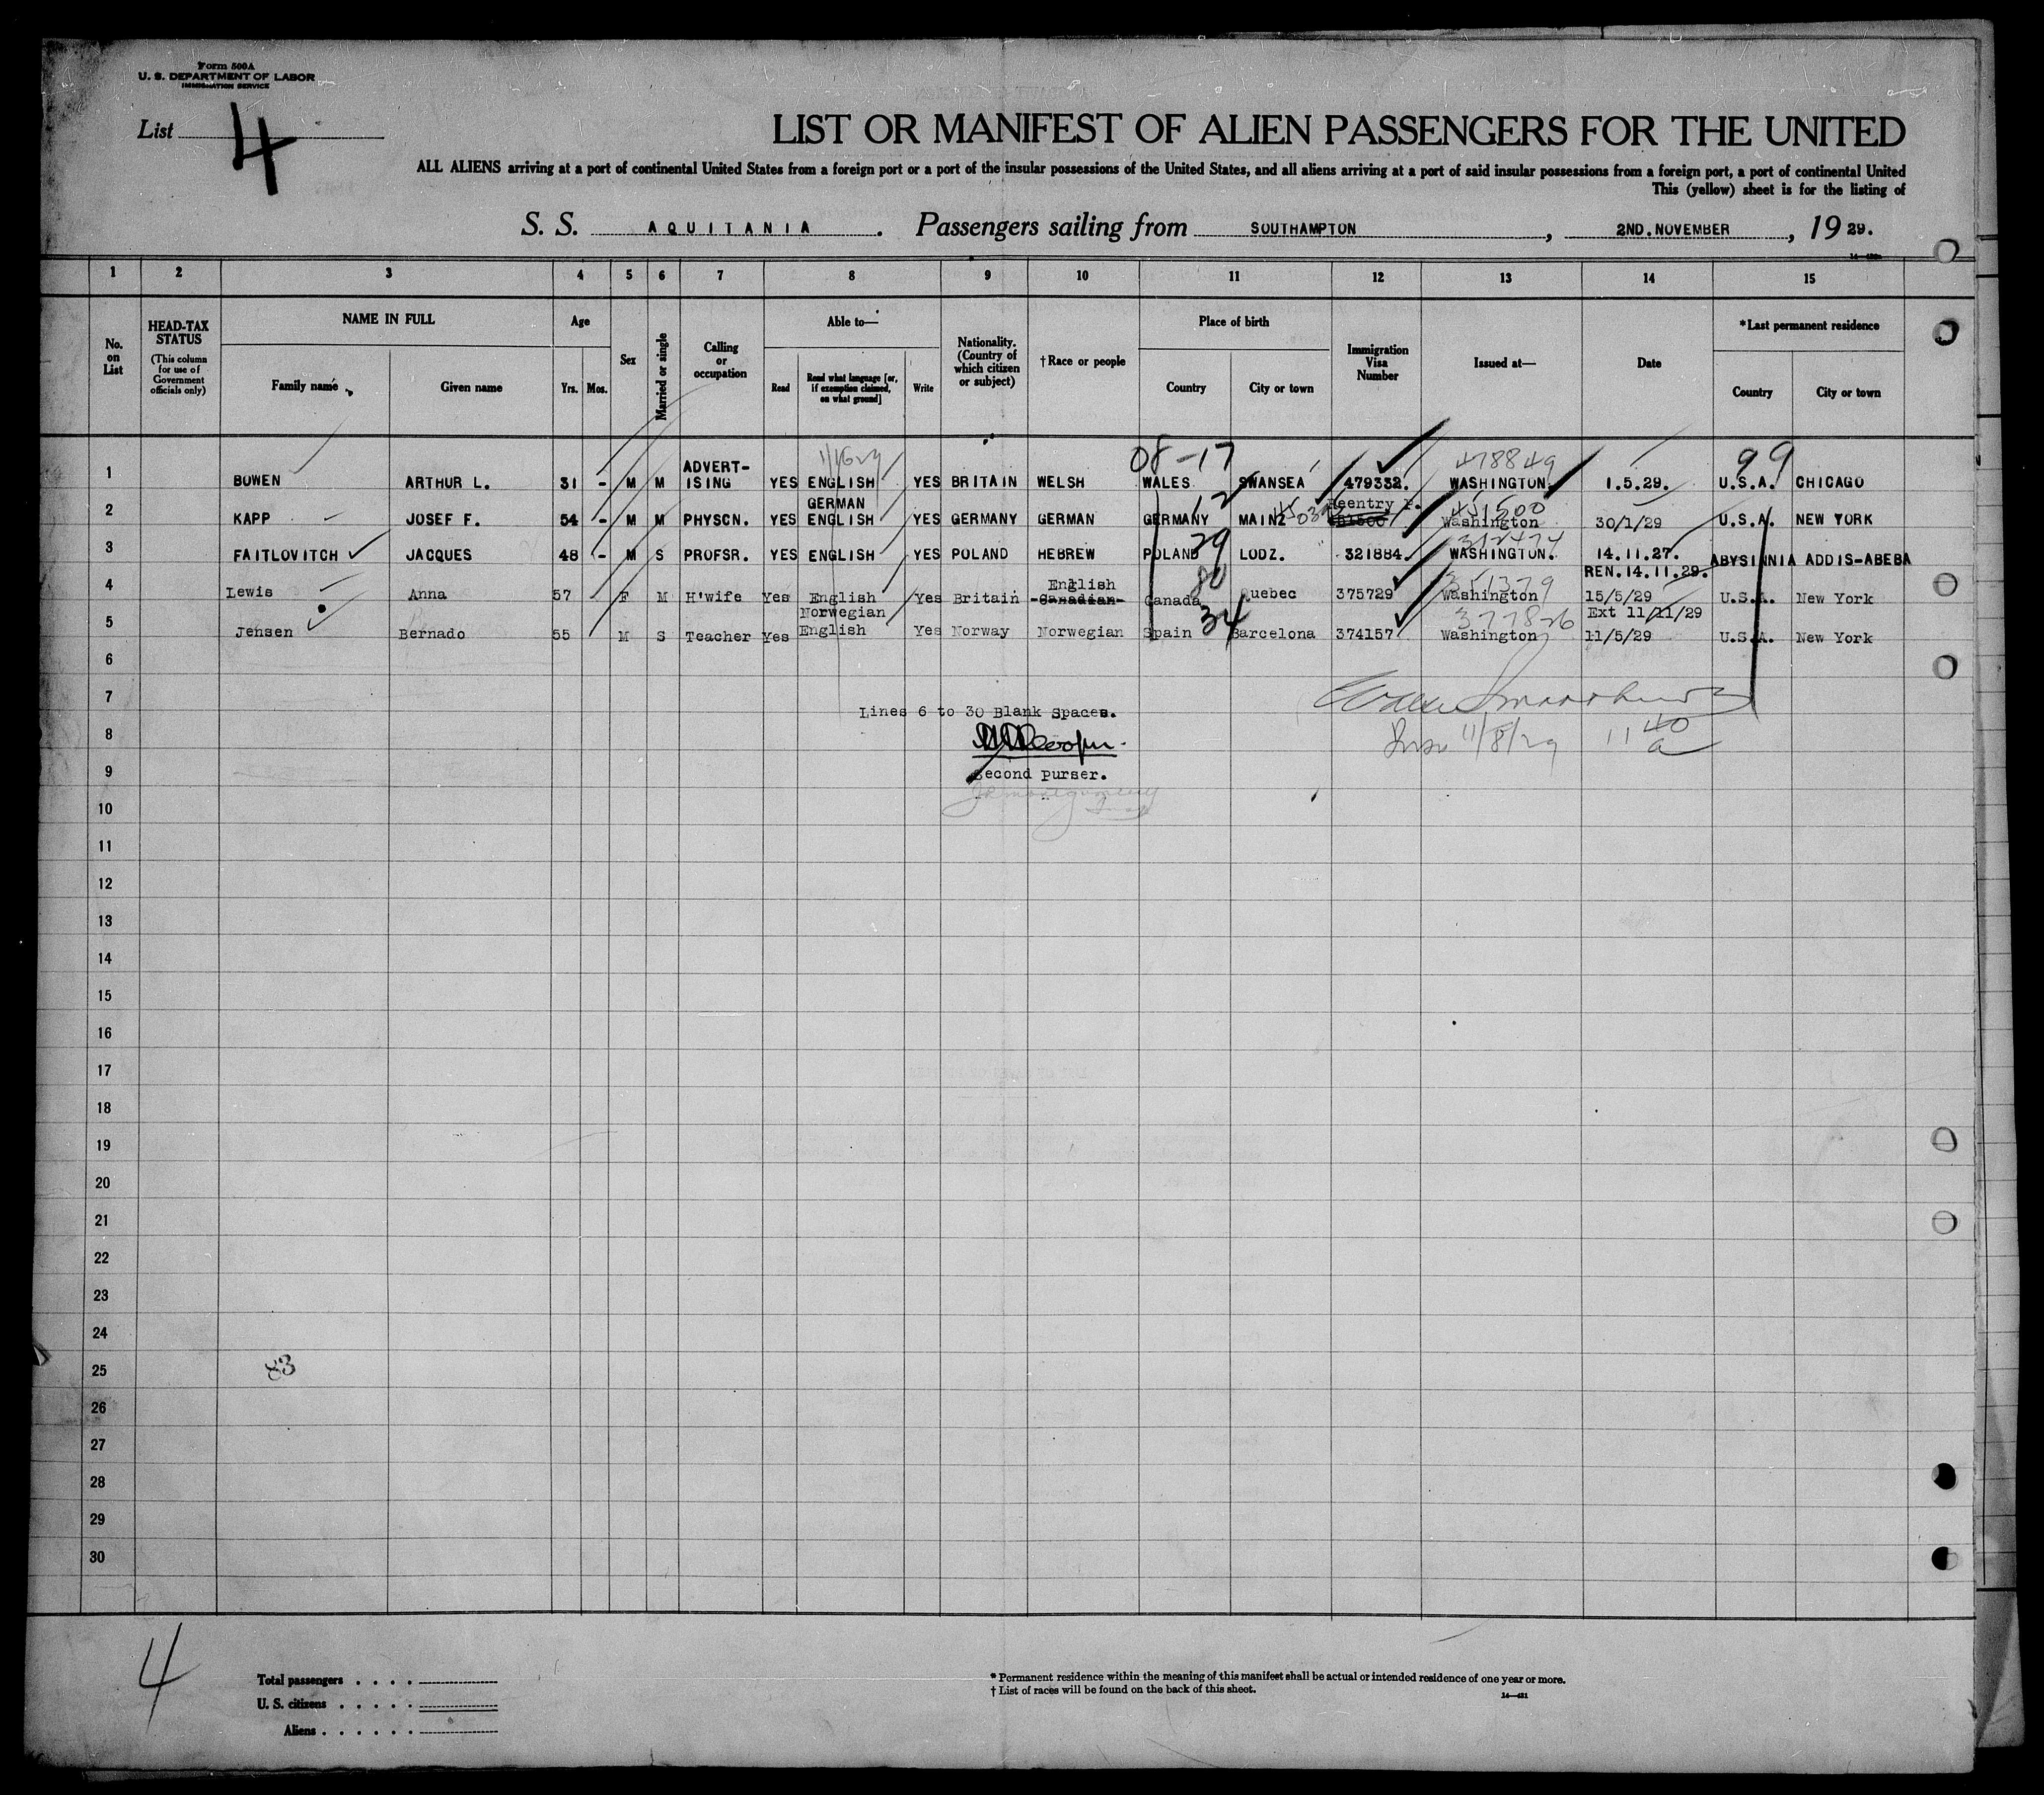 Form 500A
U. S. DEPARTMENT OF LABOR
IMMIGRATION SERVICE
List 4
LIST OR MANIFEST OF ALIEN PASSENGERS FOR THE UNITED
ALL ALIENS arriving at a port of continental United States from a foreign port or a port of the insular possessions of the United States, and all aliens arriving at a port of said insular possessions from a foreign port, a port of continental United
This (yellow) sheet is for the listing of
S. S. AQUITANIA. Passengers sailing from SOUTHAMPTON, 2ND. NOVEMBER, 19 29.
1 2 3 4 5 6 7 8 9 10 11 12 13 14 15
No. on List
HEAD-TAX STATUS (This column for use of Government officials only)
NAME IN FULL
Family name
Given name
Age
Yrs. Mos.
Sex
Married or single
Calling or occupation
Able to—
Read
Read what language [or, if exemption claimed, on what ground]
Write
Nationality. (Country of which citizen or subject)
†Race or people
Place of birth
Country
City or town
Immigration Visa Number
Issued at—
Date
*Last permanent residence
Country
City or town
08-17 478849 99
1 BOWEN ARTHUR L. 31 - M M ADVERT-ISING YES ENGLISH YES BRITAIN WELSH WALES SWANSEA 479332. WASHINGTON. 1.5.29. U.S.A. CHICAGO
12 Reentry P. 451500
2 KAPP JOSEF F. 54 - M M PHYSCN. YES GERMAN ENGLISH YES GERMANY GERMAN GERMANY MAINZ Washington 30/1/29 U.S.A. NEW YORK
29 312474
3 FAITLOVITCH JACQUES 48 - M S PROFSR. YES ENGLISH YES POLAND HEBREW POLAND LODZ. 321884. WASHINGTON. 14.11.27. REN.14.11.29. ABYSINNIA ADDIS-ABEBA
80 351379
4 Lewis Anna 57 F M H'wife Yes English Yes Britain English Canadian Canada Quebec 375729 Washington 15/5/29 U.S.A. New York
34 377826 Ext 11/11/29
5 Jensen Bernado 55 M S Teacher Yes Norwegian English Yes Norway Norwegian Spain Barcelona 374157 Washington 11/5/29 U.S.A. New York
6
7
Lines 6 to 30 Blank Spaces.
8
11/8/29 11 40 a
9
Second purser.
10
11
12
13
14
15
16
17
18
19
20
21
22
23
24
25
83
26
27
28
29
30
4
Total passengers
U. S. citizens
Aliens
* Permanent residence within the meaning of this manifest shall be actual or intended residence of one year or more.
† List of races will be found on the back of this sheet.
14—421